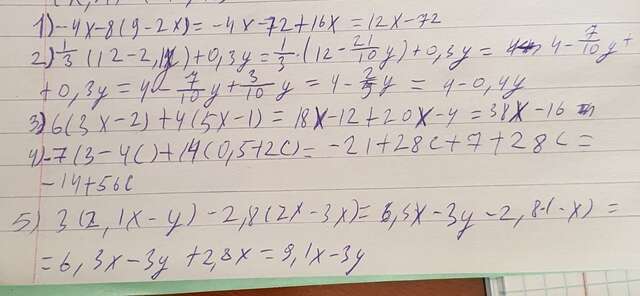 1) -4x-8(9-2x)= -4x-72+16x=12x-72
2) 1/3 (12-2,1y)+0,3y=1/3·(12-21/10y)+0,3y = 4-7/10y+
+0,3y=4-7/10y+3/10y=4-2/5y=4-0,4y
3) 6(3x-2)+4(5x-1)=18x-12+20x-4=38x-16
4) -7(3-4c)+14(0,5+2c)=-21+28c+7+28c=
-14+56c
5) 3(2,1x-y)-2,8(2x-3x)=6,3x-3y-2,8·(-x)=
=6,3x-3y+2,8x=9,1x-3y